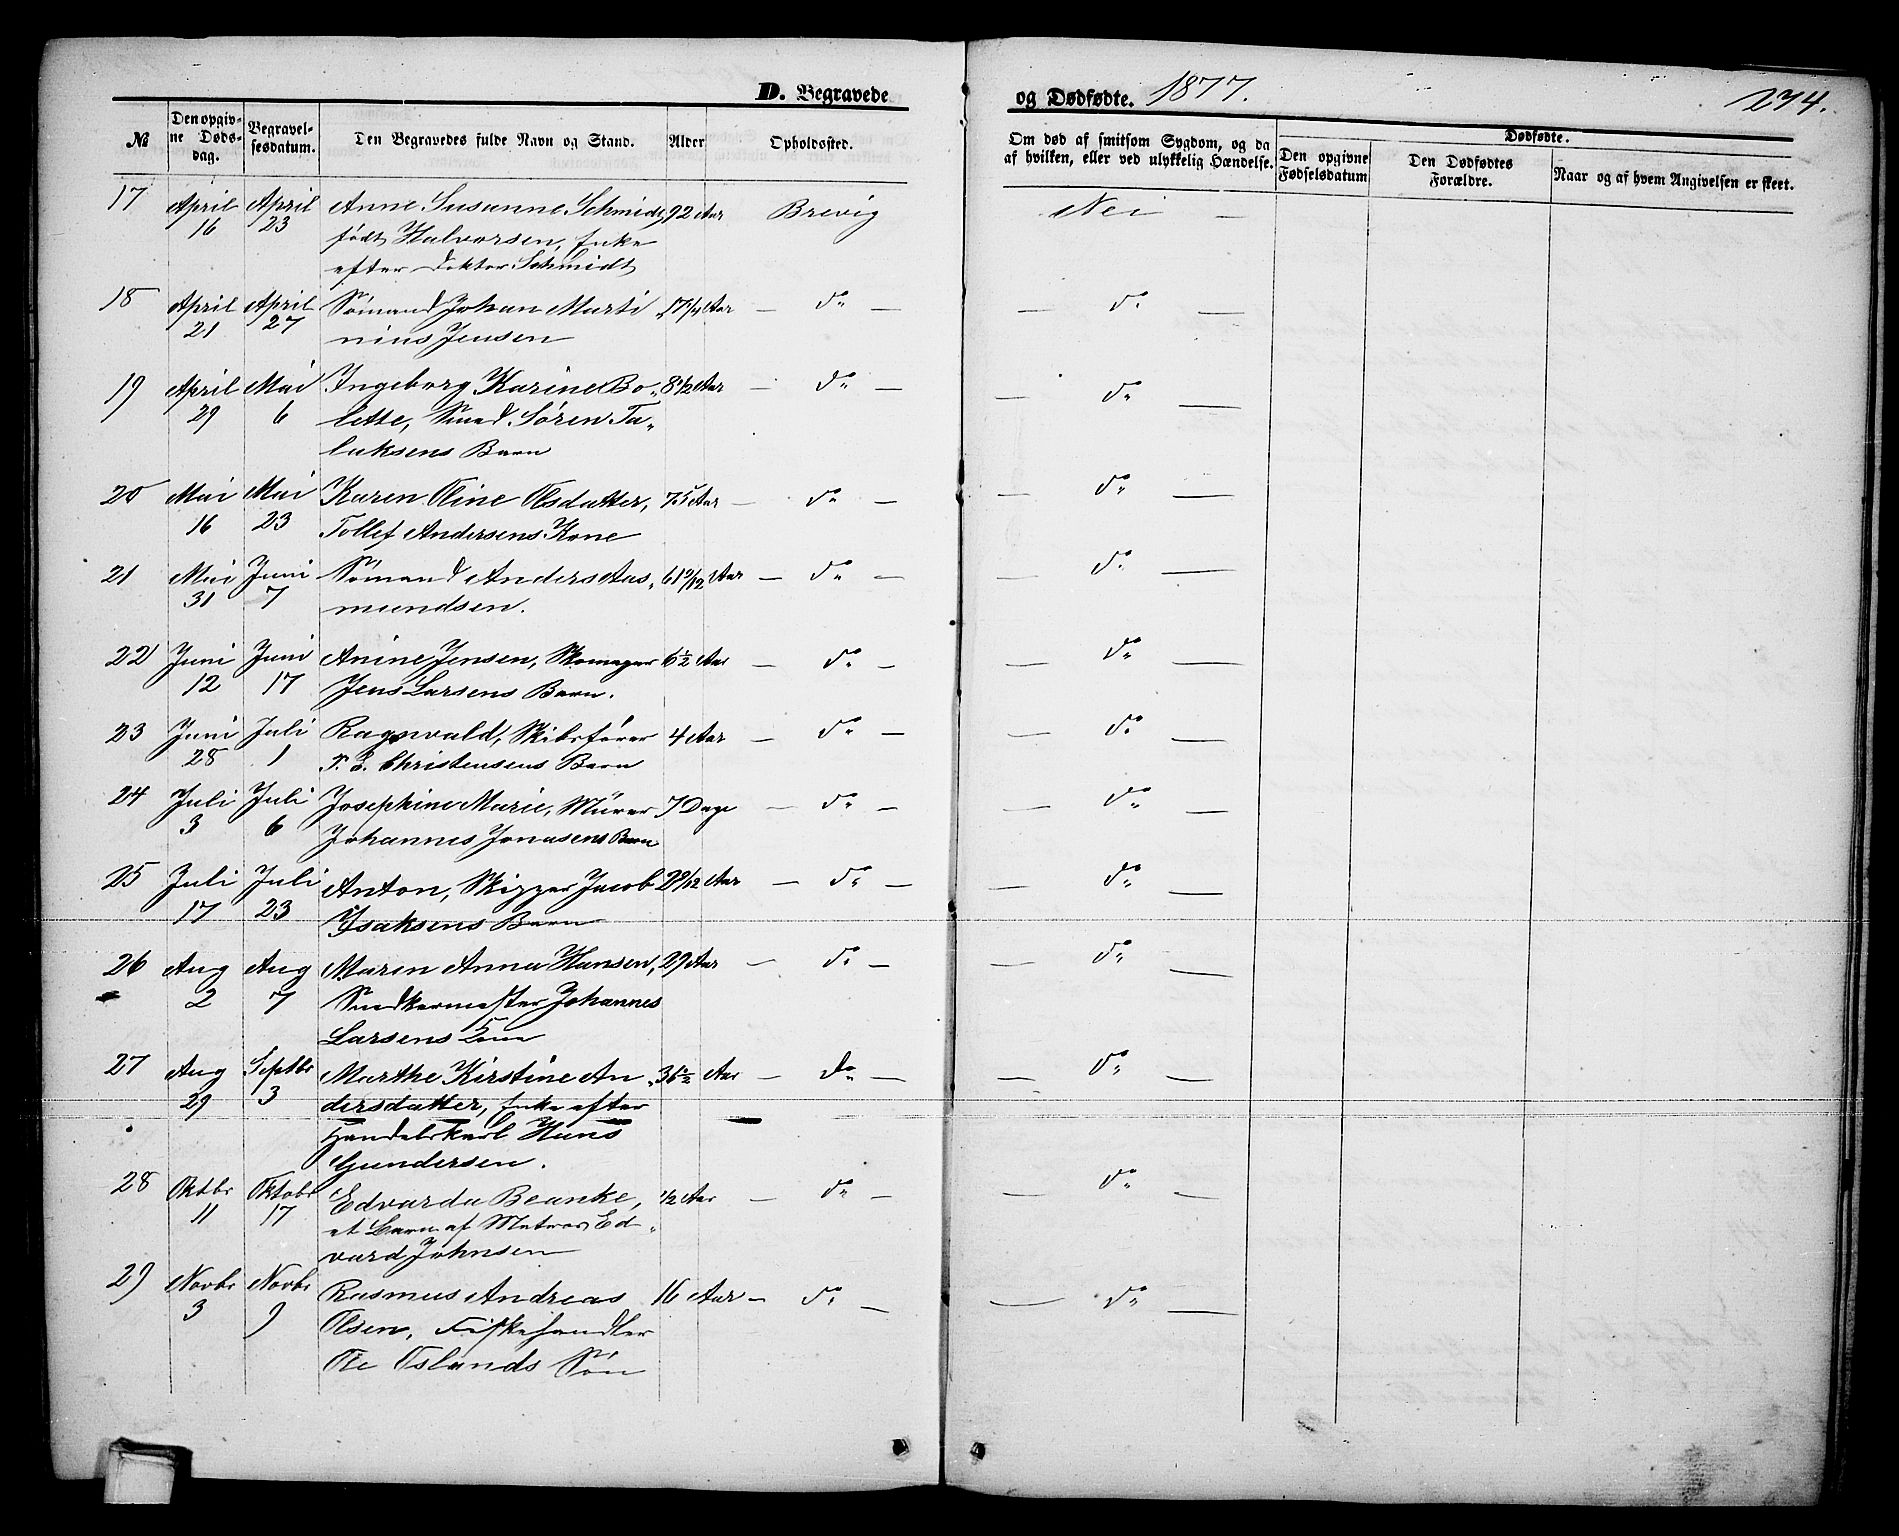 D. Begravede og Dødfødte. 1877. 274.
№ Den opgivne Dødsdag. Begravelsesdatum. Den Begravedes fulde Navn og Stand. Alder Opholdssted. Om død af smitsom Sygdom, og da af hvilken, eller ved ulykkelig Hændelse. Dødfødte. Den opgivne Fødselsdatum Den Dødfødtes Forældre. Naar og af hvem Angivelsen er skeet.
17 April April Anne Susanne Schmidt, 92 Aar Brevig Nei —
16 23 født Halvorsen, Enke
efter Doktor Schmidt
18 April April Sømand Johan Marti Aar — do — — do —
21 27 nius Jensen
19 April Mai Ingeborg Karine Bo- 8 1/2 Aar — do — — do —
29 6 lette, Smed Søren Ta-
laksens Barn
20 Mai Mai Karen Oline Olsdatter, 75 Aar — do — — do —
16 23 Tollef Andersens Kone
21 Mai Juni Sømand Anders Aas- Aar — do — — do —
31 7 mundsen.
22 Juni Juni Anine Jensen, Skomager 6 1/2 Aar — do — — do —
12 17 Jens Larsens Barn.
23 Juni Juli Ragnvald, Skibsfører 4 Aar — do — — do —
28 1 Christensens Barn
24 Juli Juli Josephine Marie, Murer 7 Dage — do — — do —
3 6 Johannes Jonasens Barn
25 Juli Juli Anton, Skipper Jacob Aar — do — — do —
17 23 Isaksens Barn
26 Aug Aug Maren Anna Hansen, 29 Aar — do — — do —
2 7 Snedkermester Johannes
Larsens
27 Aug Septbr Marthe Kirstine An- 36 1/2 Aar — do — — do —
29 3 dersdatter, Enke efter
Handelskarl Hans
Gundersen.
28 Oktbr Oktobr Edvarda Beanke, 1/2 Aar — do — — do —
11 17 et Barn af Matros Ed-
vard Johnsen
29 Novbr Novbr Rasmus Andreas 16 Aar — do — — do —
3 9 Olsen, Fiskehandler
Ole Oslands Søn